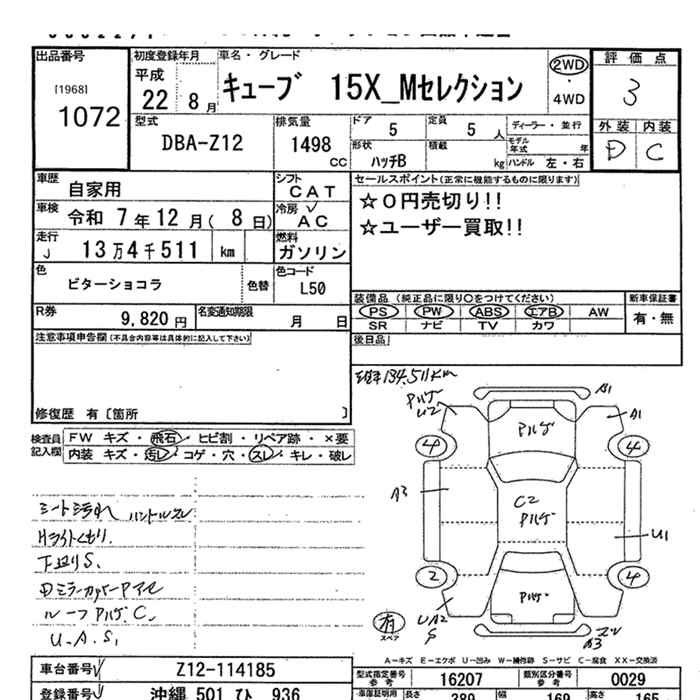 出品番号
[1968]
1072
初度登録年月
平成
22年 8月
車名・グレード
キューブ 15X_Mセレクション
2WD
・
4WD
評価点
3
外装 内装
D C
型式
DBA-Z12
排気量
1498
CC
ドア 5
定員 5 人
形状 ハッチB
積載 kg
ディーラー・並行
モデル年式 年
ハンドル 左・右
車歴 自家用
シフト CAT
車検 令和 7年12月( 8日)
冷房 AC
走行 J 13万4千511 km
燃料 ガソリン
色 ビターショコラ 色替
色コード L50
R券 9,820円
名変通知期限 月 日
セールスポイント(正常に機能するものに限ります)
☆0円売切り!!
☆ユーザー買取!!
装備品 (純正品に限り○をつけてください)
PS PW ABS エアB AW
SR ナビ TV カワ
新車保証書
有・無
後日品
注意事項申告欄(不具合内容等は具体的に記入して下さい)
修復歴 有〔箇所 〕
検査員記入欄
FW キズ・飛石・ヒビ割・リペア跡・×要
内装 キズ・汚レ・コゲ・穴・スレ・キレ・破レ
134,511km
シート汚れ ハンドルスレ
Hライトくもり
下廻りS.
DミラーカバーPアセ
ルーフPハゲC.
U.A.S.
Pハゲ
U2
B1
Pハゲ
A1
4
4
A3
C2
Pハゲ
U1
2
4
Pハゲ
UA2
S
有
スペア
B3
A-キズ E-エクボ U-凹み W-補修跡 S-サビ C-腐食 XX-交換済
車台番号 Z12-114185
型式指定番号
参考
16207
類別区分番号
参考
0029
登録番号 沖縄 501 ひ 936
車庫証明用
長さ 389 幅 169 高さ 165